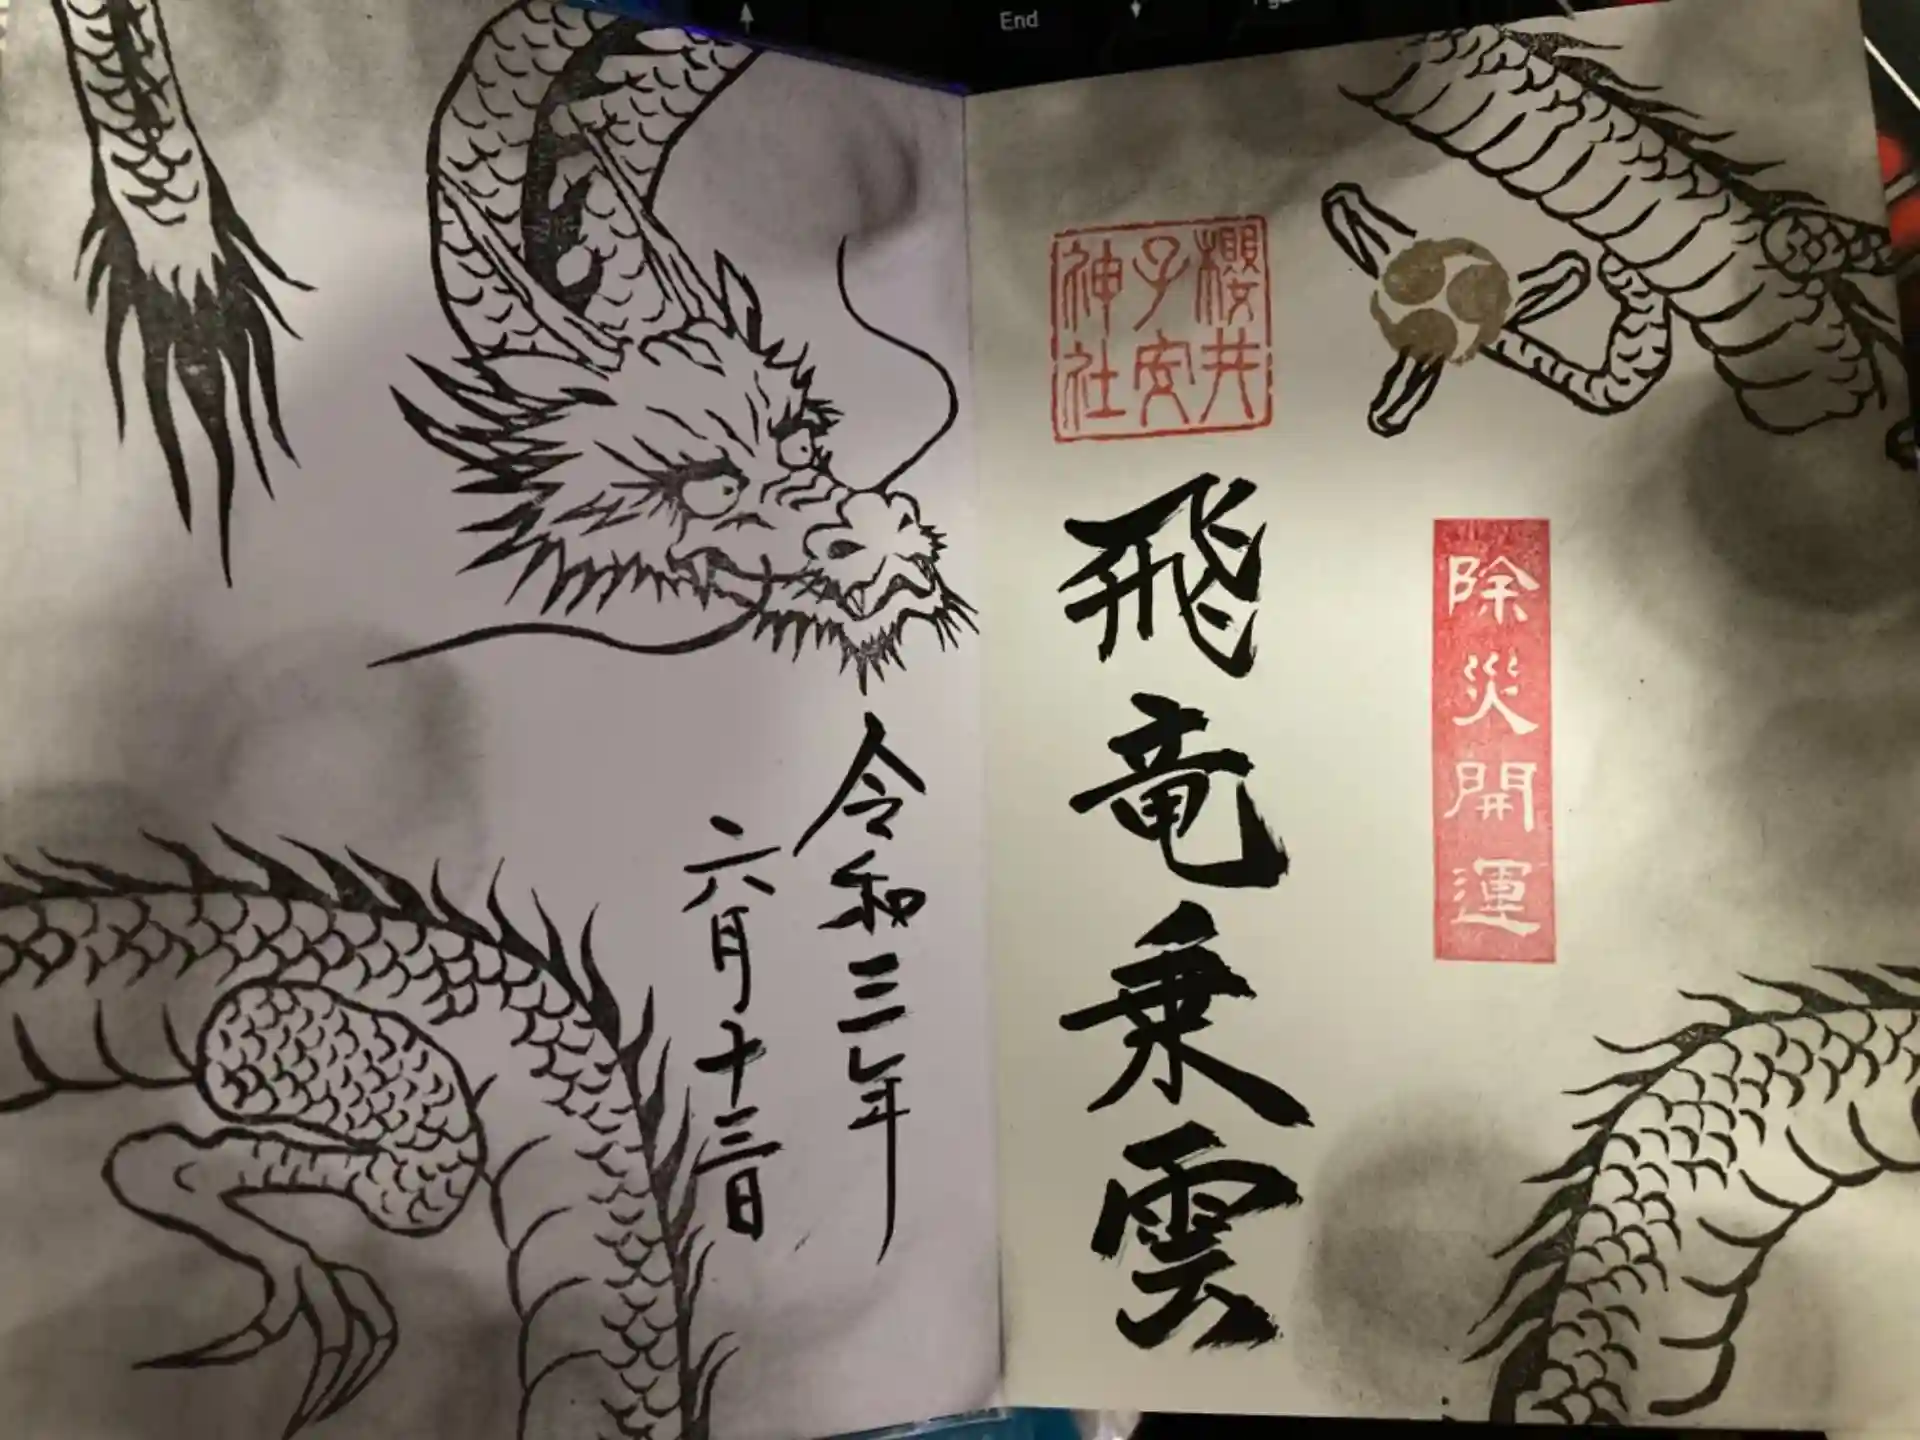 End
除災開運
櫻井
子安
神社
飛竜乗雲
令和三年
六月十三日